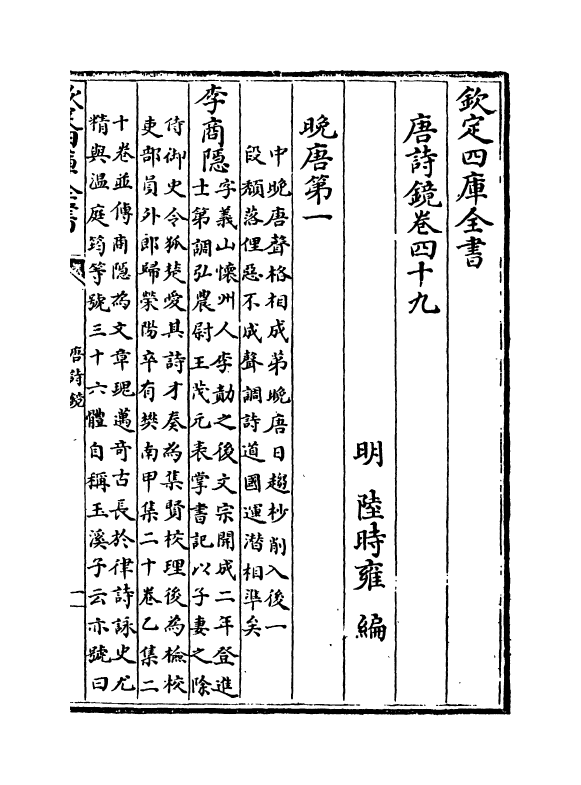 欽定四庫全書
唐詩鏡卷四十九
明 陸時雍 編
晚唐第一
中晚唐聲格相成第晚唐日趨杪削入後一
段頹落俚惡不成聲調詩道國運潜相準矣
李商隠
字義山懷州人李勣之後文宗開成二年登進
士第調弘農尉王茂元表掌書記以子妻之除
侍御史令狐楚愛其詩才奏為集賢校理後為檢校
吏部員外郎歸滎陽卒有樊南甲集二十卷乙集二
十卷並傳商隠為文章瑰邁奇古長於律詩詠史尤
精與温庭筠等號三十六體自稱玉溪子云亦號曰
唐詩鏡